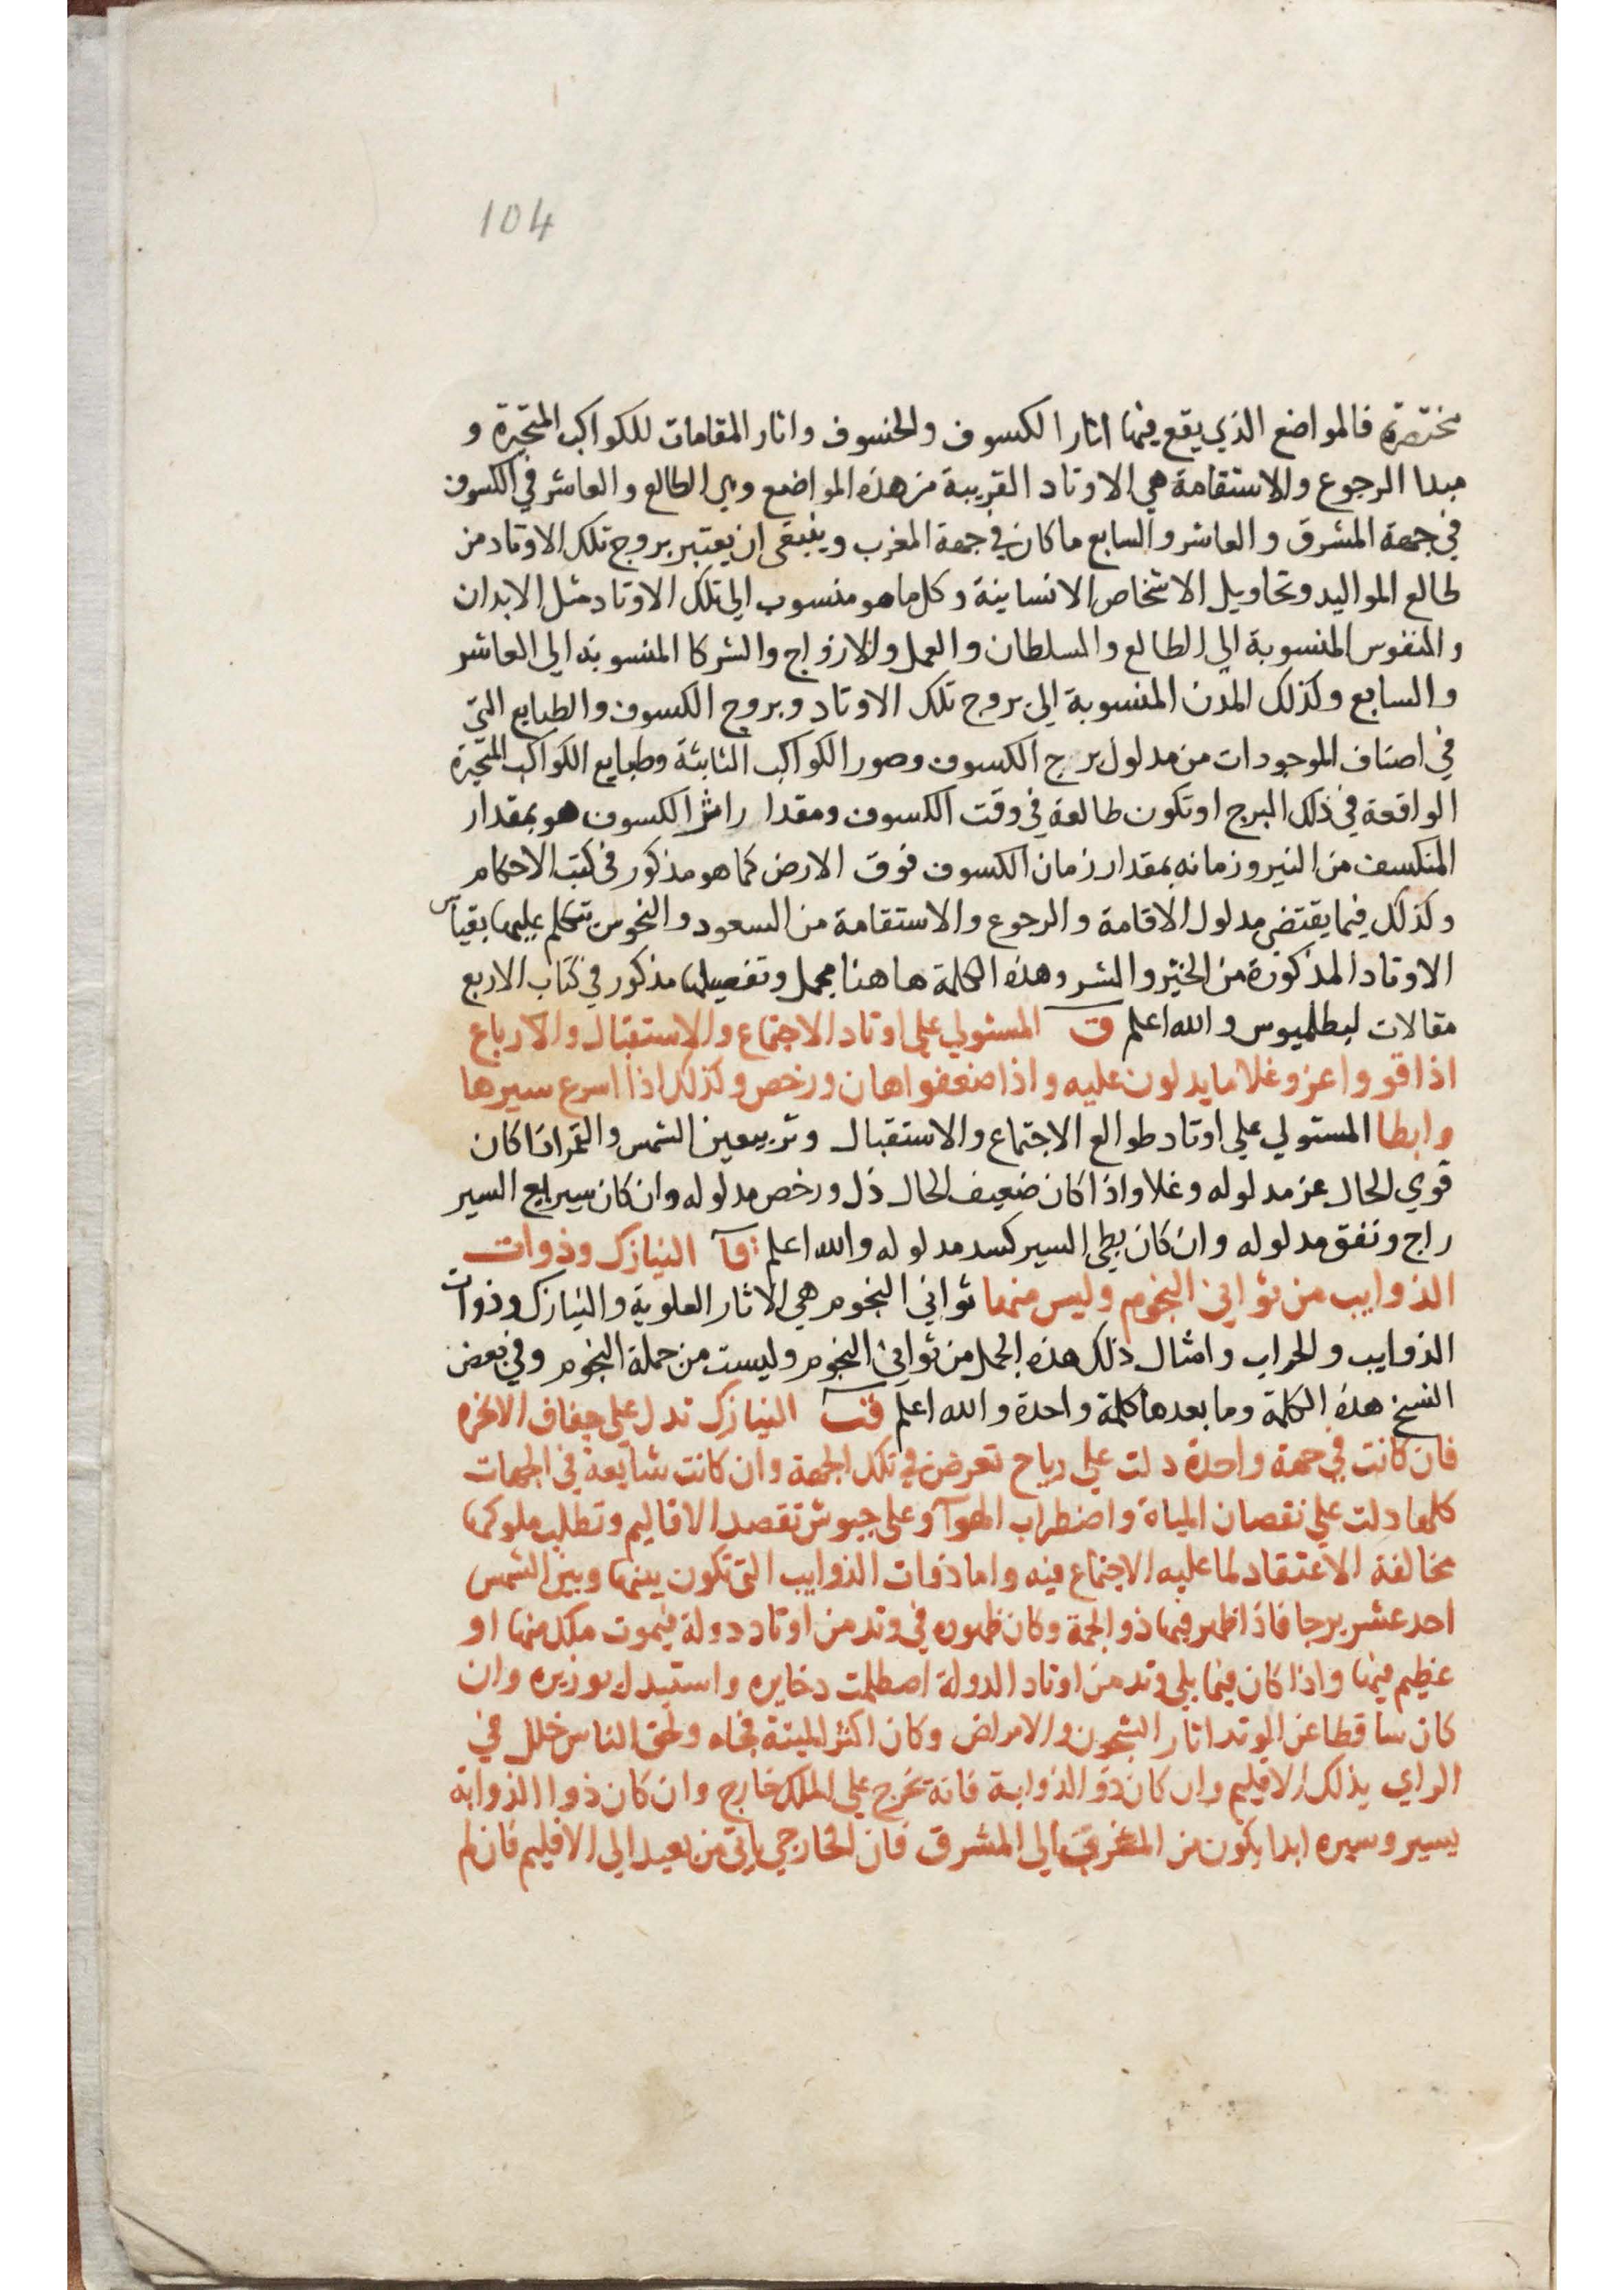 104
مختصرة فالمواضع الذي يقع فيها اثار الكسوف والخسوف واثار المقامات للكواكب المتحيرة و
مبدا الرجوع والاستقامة هي الاوتاد القريبة من هذه المواضع وهي الطالع والعاشر في الكسوف
في جهة المشرق والعاشر والسابع ما كان في جهة المغرب وينبغي ان يعتبر بروج تلك الاوتاد من
طالع المواليد وتحاويل الاشخاص الانسانية وكل ما هو منسوب الي تلك الاوتاد مثل الابدان
والنفوس المنسوبة الي الطالع والسلطان والعمل والازواج والشركا المنسوبة الي العاشر
والسابع وكذلك المدن المنسوبة الي بروج تلك الاوتاد وبروج الكسوف والطبايع التي
في اصناف الموجودات من مدلول برج الكسوف وصور الكواكب الثابتة وطبايع الكواكب المتحيرة
الواقعة في ذلك البرج او تكون طالعة في وقت الكسوف ومقدار اثر الكسوف هو بمقدار
المنكسف من النير وزمانه بمقدار زمان الكسوف فوق الارض كما هو مذكور في كتب الاحكام
وكذلك فيما يقتضي مدلول الاقامة والرجوع والاستقامة من السعود والنحوس تتكلم عليها بقياس
الاوتاد المذكورة من الخير والشر وهذه الكلمة ها هنا مجمل وتفصيلها مذكور في كتاب الاربع
مقالات لبطلميوس والله اعلم ق المستولي علي اوتاد الاجتماع والاستقبال والارباع
اذا قووا عز وغلا ما يدلون عليه واذا ضعفوا هان ورخص وكذلك اذا اسرع سيرها
وابطا المستولي علي اوتاد طوالع الاجتماع والاستقبال وتربيعين الشمس والقمر اذا كان
قوي الحال عز مدلوله وغلا واذا كان ضعيف الحال ذل ورخص مدلوله وان كان سريع السير
راج ونفق مدلوله وان كان بطي السير كسد مدلوله والله اعلم قا النيازك وذوات
الذوايب من ثواني النجوم وليس منها ثواني النجوم هي الاثار العلوية والنيازك وذوات
الذوايب والحراب وامثال ذلك هذه الجمل من ثواني النجوم وليست من جملة النجوم وفي بعض
النسخ هذه الكلمة وما بعدها كلمة واحدة والله اعلم قب النيازك تدل علي جفاف الابخره
فان كانت في جهة واحدة دلت علي رياح تعرض في تلك الجهة وان كانت شايعة في الجهات
كلها دلت علي نقصان المياة واضطراب الهوآ وعلي جيوش تقصد الاقاليم وتطلب ملوكها
مخالفة الاعتقاد لما عليه الاجتماع فيه واما ذوات الذوايب التي تكون بينها وبين الشمس
احد عشر برجا فاذا ظهر فيها ذو الجمة وكان ظهوره في وتد من اوتاد دولة فيموت ملك منها او
عظيم فيها واذا كان فيما يلي وتد من اوتاد الدولة اصطلمت دخايره واستبدل بوزيره وان
كان ساقطا عن الوتد اثار والامراض وكان اكثر الميتة فجاه ولحق الناس خلل في
الراي بذلك الاقليم وان كان ذو الذوابة فانة يخرج علي الملك خارج وان كان ذوا الذوابة
يسير وسيره ابدا يكون من المغرب الي المشرق فان الخارجي ياتي من بعيد الي الاقليم فان لم